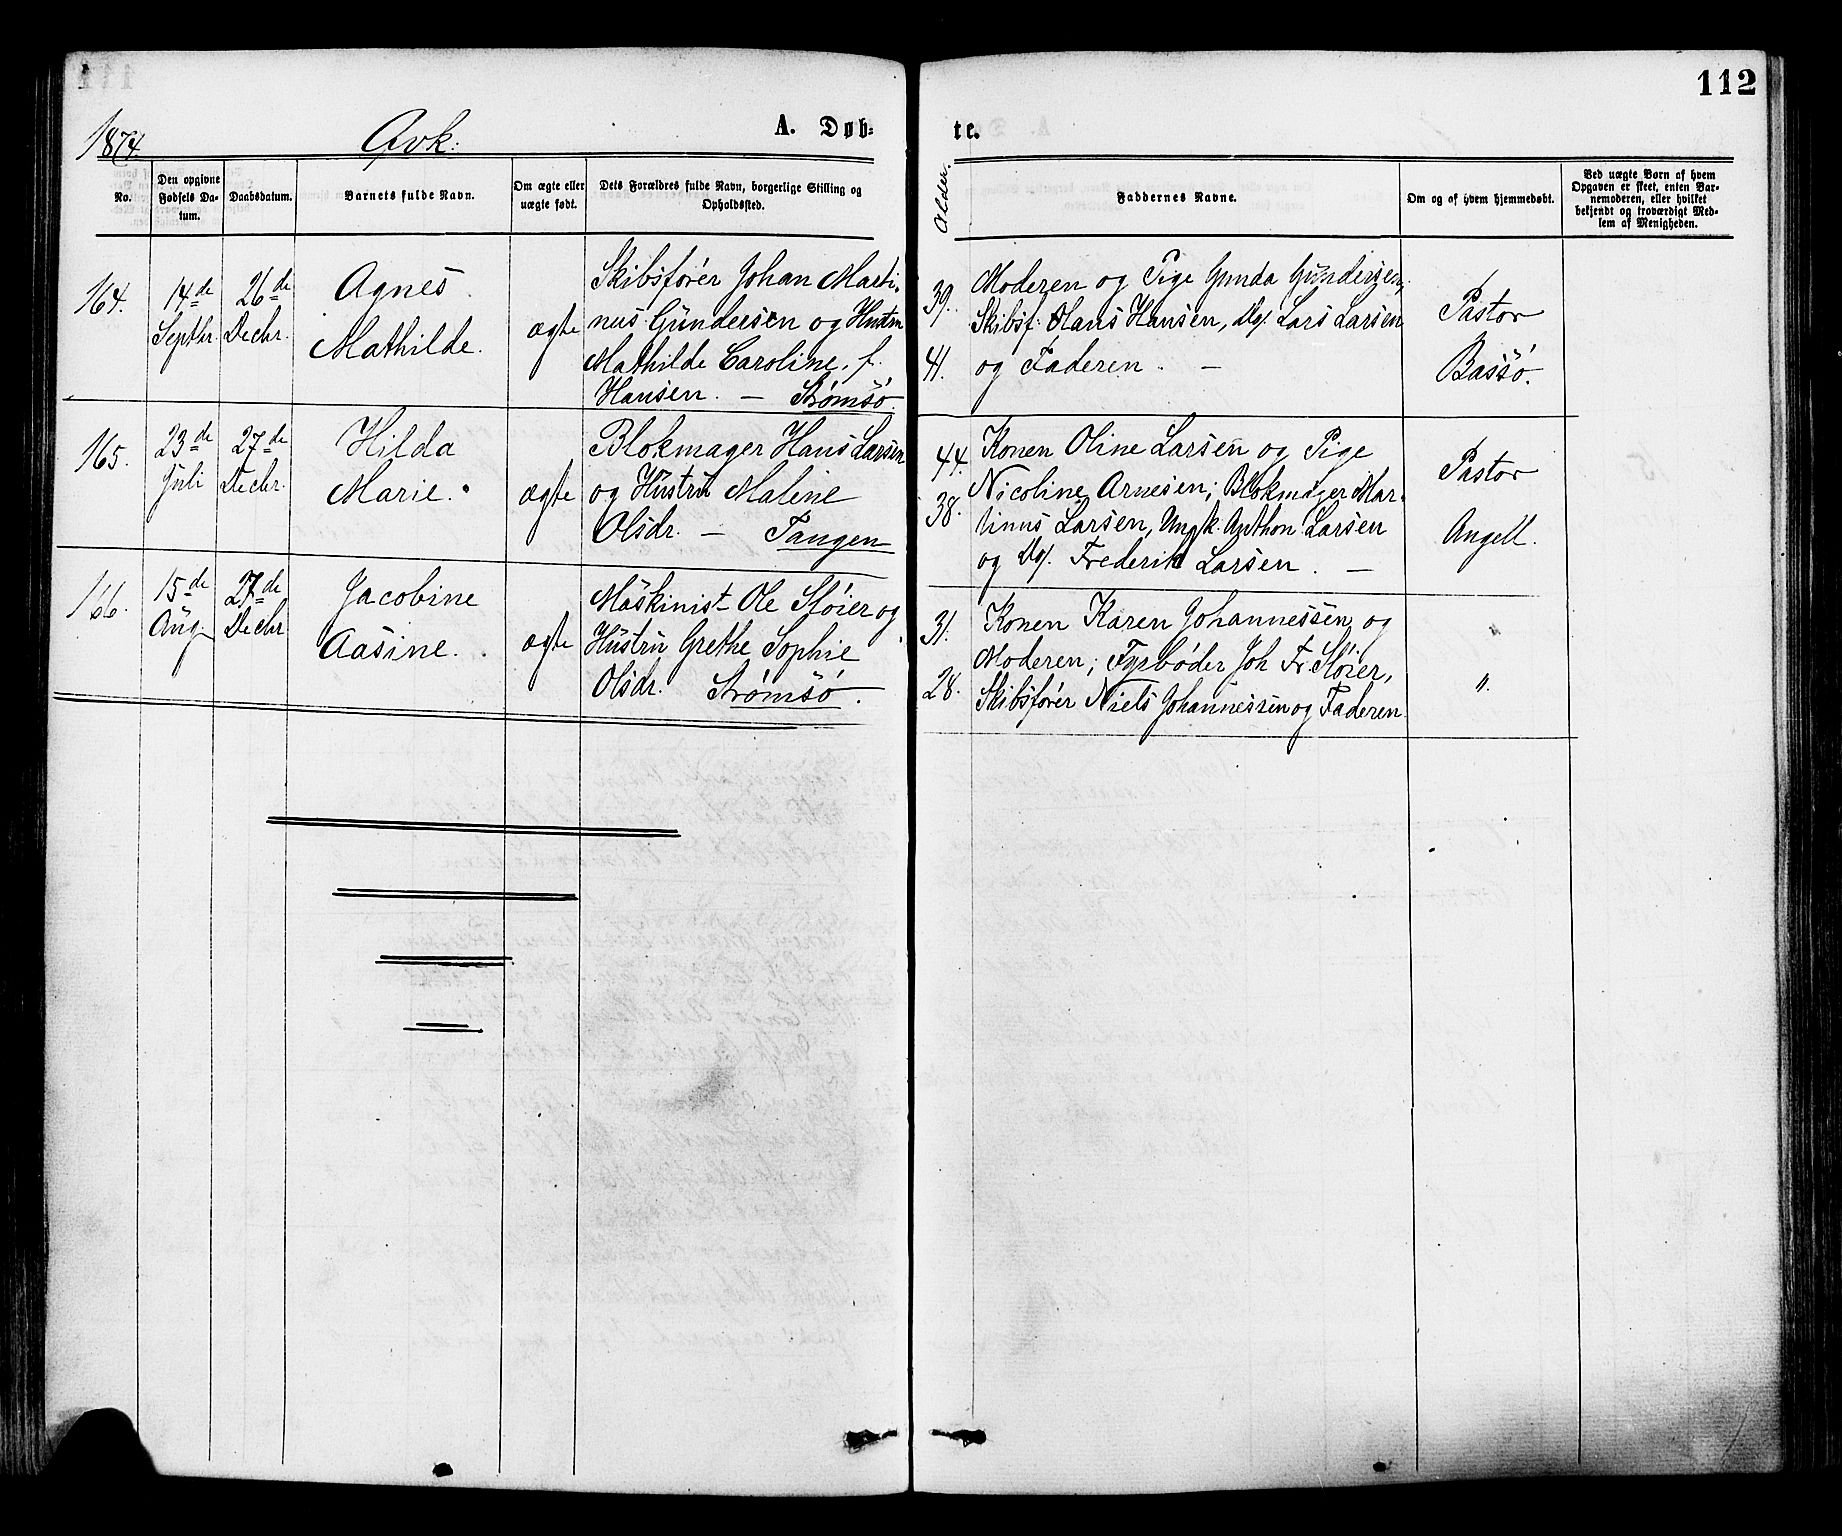 112
1874.
Qvk:
A. Døb-
te.
No.
Den opgivne Fødsels Da-tum.
Daabsdatum.
Barnets fulde Navn.
Om ægte eller uægte født.
Dets Forældres fulde Navn, borgerlige Stilling og Opholdssted.
Alder.
Faddernes Navne.
Om og af hvem hjemmedøbt.
Ved uægte Børn af hvem Opgaven er skeet, enten Bar-nemoderen, eller hvilket bekjendt og troværdigt Med-lem af Menigheden.
164.
14de
Septbr.
26de
Decbr.
Agnes
Mathilde.
ægte
Skibsfører Johan Marti-
nus Gundersen og Hustru
Mathilde Caroline, f.
Hansen. — Strømsö.
39.
41.
Moderen og Pige Gunda Gundersen,
Skibsf. Hans Hansen, Do. Lars Larsen
og Faderen. —
Pastor
Bassö.
165.
23de
Juli
27de
Decbr.
Hilda
Marie.
ægte
Blokmager Hans Larsen
og Hustru Maline
Olsdr. — Tangen
44.
38.
Konen Oline Larsen og Pige
Nicoline Arnesen; Blokmager Mar-
tinus Larsen, Ungk. Anthon Larsen
og Do. Frederik Larsen. —
Pastor
Angell.
166.
15de
Aug.
27de
Decbr
Jacobine
Aasine.
ægte
Maskinist Ole Støier og
Hustru Grethe Sophie
Olsdr. Strømsö.
31.
28.
Konen Karen Johannessen og
Moderen; Fyrbøder Joh. Fr. Støier,
Skibsfører Niels Johannessen og Faderen.
"
".